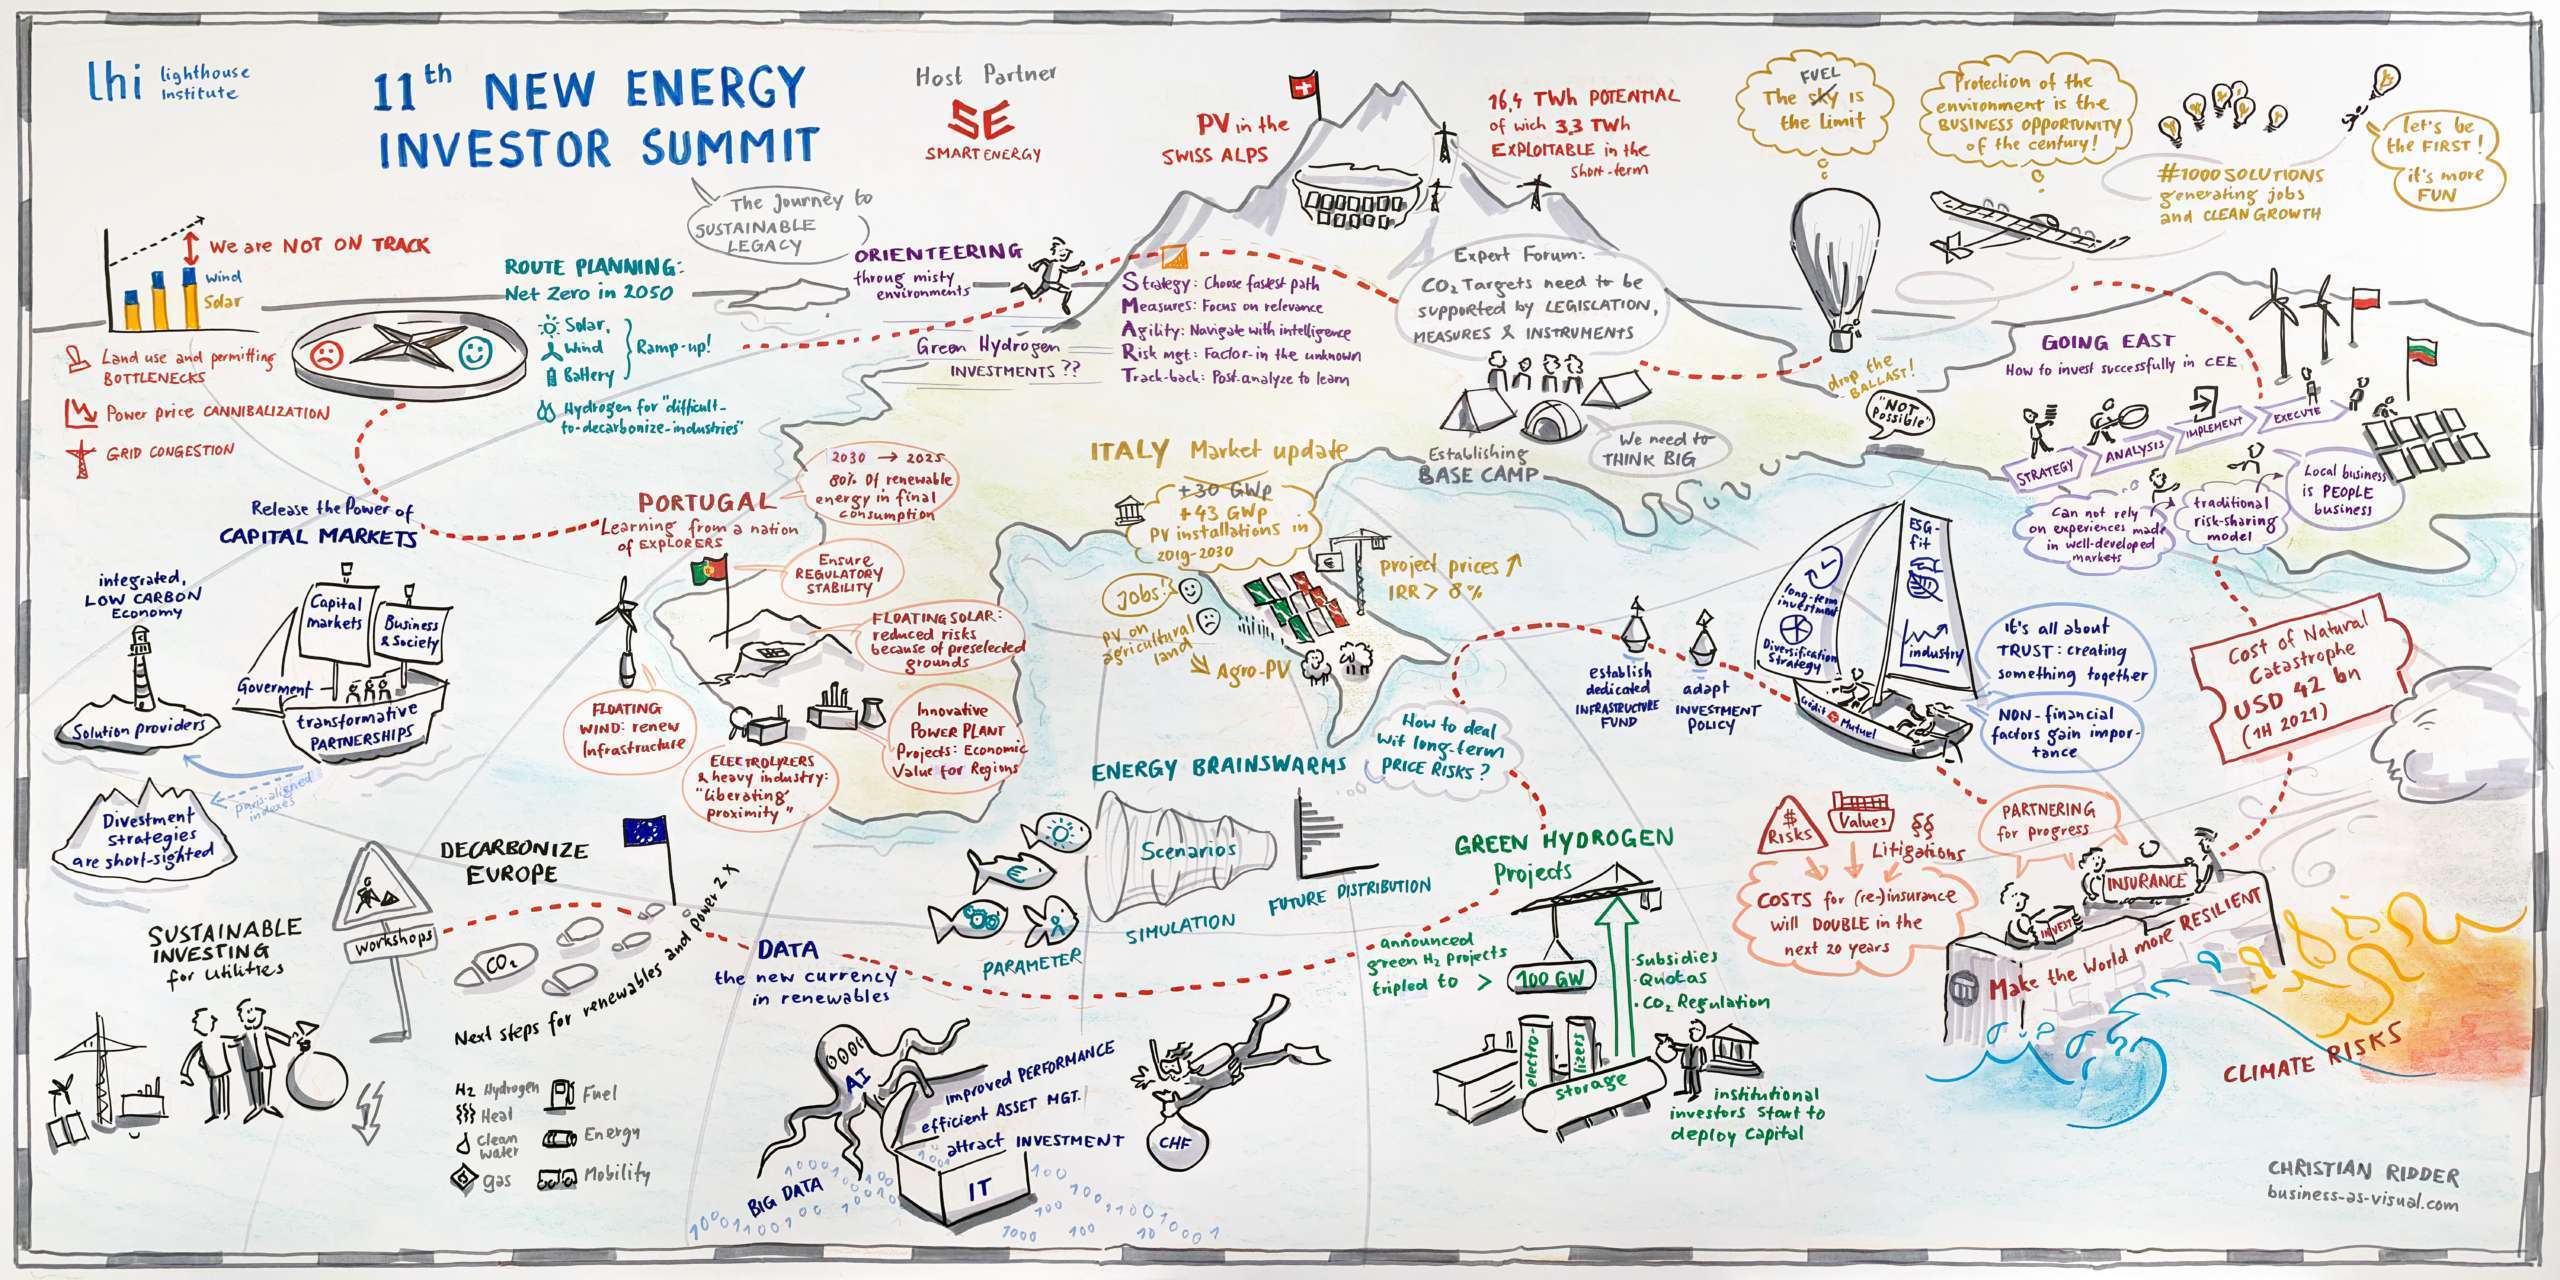 lhi lighthouse
Institute
11th NEW ENERGY
INVESTOR SUMMIT
The Journey to
SUSTAINABLE
LEGACY
Host Partner
SE
SMART ENERGY
PV in the
SWISS ALPS
16,4 TWh POTENTIAL
of wich 3,3 TWh
EXPLOITABLE in the
short-term
FUEL
The sky is
the limit
Protection of the
environment is the
BUSINESS OPPORTUNITY
of the century!
#1000 SOLUTIONS
generating jobs
and CLEAN GROWTH
let's be
the FIRST!
it's more
FUN
We are NOT ON TRACK
Wind
Solar
Land use and permitting
BOTTLENECKS
Power price CANNIBALIZATION
GRID CONGESTION
ROUTE PLANNING:
Net Zero in 2050
Solar,
Wind
Battery
Ramp-up!
Hydrogen for "difficult-
to-decarbonize-industries"
ORIENTEERING
throug misty
environments
Green Hydrogen
INVESTMENTS ??
Strategy: Choose fastest path
Measures: Focus on relevance
Agility: Navigate with intelligence
Risk mgt: Factor-in the unknown
Track-back: Post-analyze to learn
Expert Forum:
CO2 Targets need to be
supported by LEGISLATION,
MEASURES & INSTRUMENTS
Establishing
BASE CAMP
We need to
THINK BIG
drop the
BALLAST!
"NOT
Possible"
GOING EAST
How to invest successfully in CEE
STRATEGY
ANALYSIS
IMPLEMENT
EXECUTE
Can not rely
on experiences made
in well-developed
markets
traditional
risk-sharing
model
Local business
is PEOPLE
business
Release the Power of
CAPITAL MARKETS
integrated,
LOW CARBON
Economy
Solution providers
Capital
markets
Business
& Society
Goverment
transformative
PARTNERSHIPS
paris-aligned
indexes
Divestment
strategies
are short-sighted
PORTUGAL
Learning from a nation
of EXPLORERS
2030 → 2025
80% of renewable
energy in final
consumption
Ensure
REGULATORY
STABILITY
FLOATING SOLAR:
reduced risks
because of preselected
grounds
FLOATING
WIND: renew
Infrastructure
ELECTROLYZERS
& heavy industry:
"liberating
proximity"
Innovative
POWER PLANT
Projects: Economic
Value for Regions
ITALY Market update
+30 GWp
+43 GWp
PV installations in
2019-2030
Jobs!
PV on
agricultural
land
Agro-PV
€
project prices ↑
IRR > 8%
How to deal
wit long-term
PRICE RISKS?
establish
dedicated
INFRASTRUCTURE
FUND
adapt
INVESTMENT
POLICY
long-term
investment
Diversification
Strategy
ESG-
fit
industry
Crédit Mutuel
it's all about
TRUST: creating
something together
NON-financial
factors gain impor-
tance
Cost of Natural
Catastrophe
USD 42 bn
(1H 2021)
ENERGY BRAINSWARMS
PARAMETER
Scenarios
SIMULATION
FUTURE DISTRIBUTION
GREEN HYDROGEN
Projects
announced
green H2 projects
tripled to >
100 GW
Subsidies
Quotas
CO2 Regulation
electro-
lizers
storage
institutional
investors start to
deploy capital
$
RISKS
Values
§§
Litigations
COSTS for (re-)insurance
will DOUBLE in the
next 20 years
PARTNERING
for progress
INVEST
INSURANCE
Make the World more RESILIENT
CLIMATE RISKS
SUSTAINABLE
INVESTING
for Utilities
workshops
DECARBONIZE
EUROPE
CO2
Next steps for renewables and power 2 X
H2 Hydrogen
Heat
Clean
water
gas
Fuel
Energy
Mobility
DATA
the new currency
in renewables
AI
improved PERFORMANCE
efficient ASSET MGT.
attract INVESTMENT
IT
BIG DATA
CHF
CHRISTIAN RIDDER
business-as-visual.com